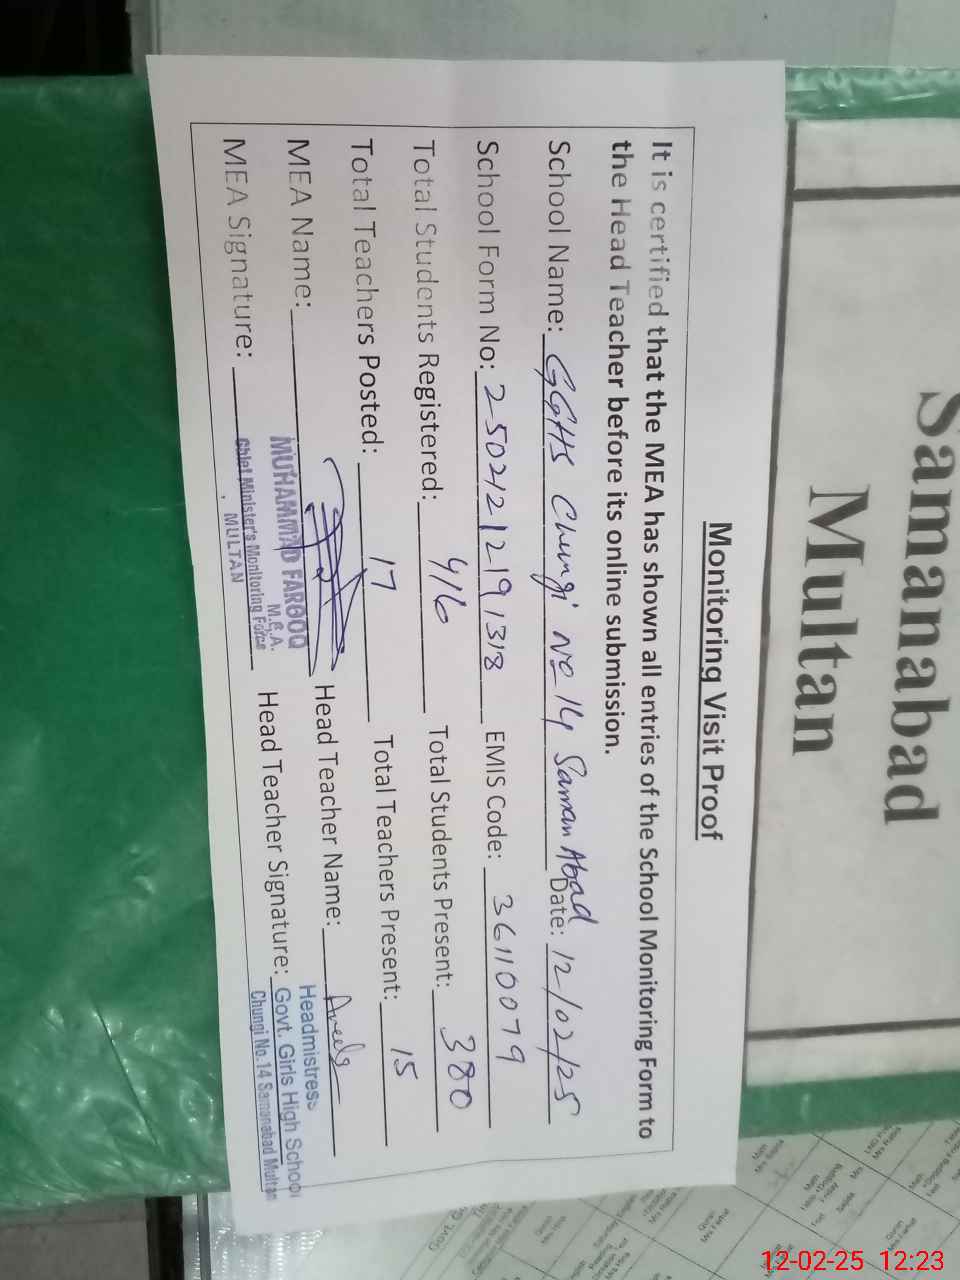 Samanabad
Multan
Monitoring Visit Proof
It is certified that the MEA has shown all entries of the School Monitoring Form to
the Head Teacher before its online submission.
School Name: GGHS Chungi No 14 Saman Abad Date: 12/02/25
School Form No: 25021212191318 EMIS Code: 36110079
Total Students Registered: 416 Total Students Present: 380
Total Teachers Posted: 17 Total Teachers Present: 15
MEA Name: MUHAMMAD FAROOQ Head Teacher Name:
M.E.A.
MEA Signature: Chief Minister's Monitoring Force Head Teacher Signature:
MULTAN
Headmistress
Govt. Girls High School
Chungi No.14 Samanabad Multan
12-02-25 12:23